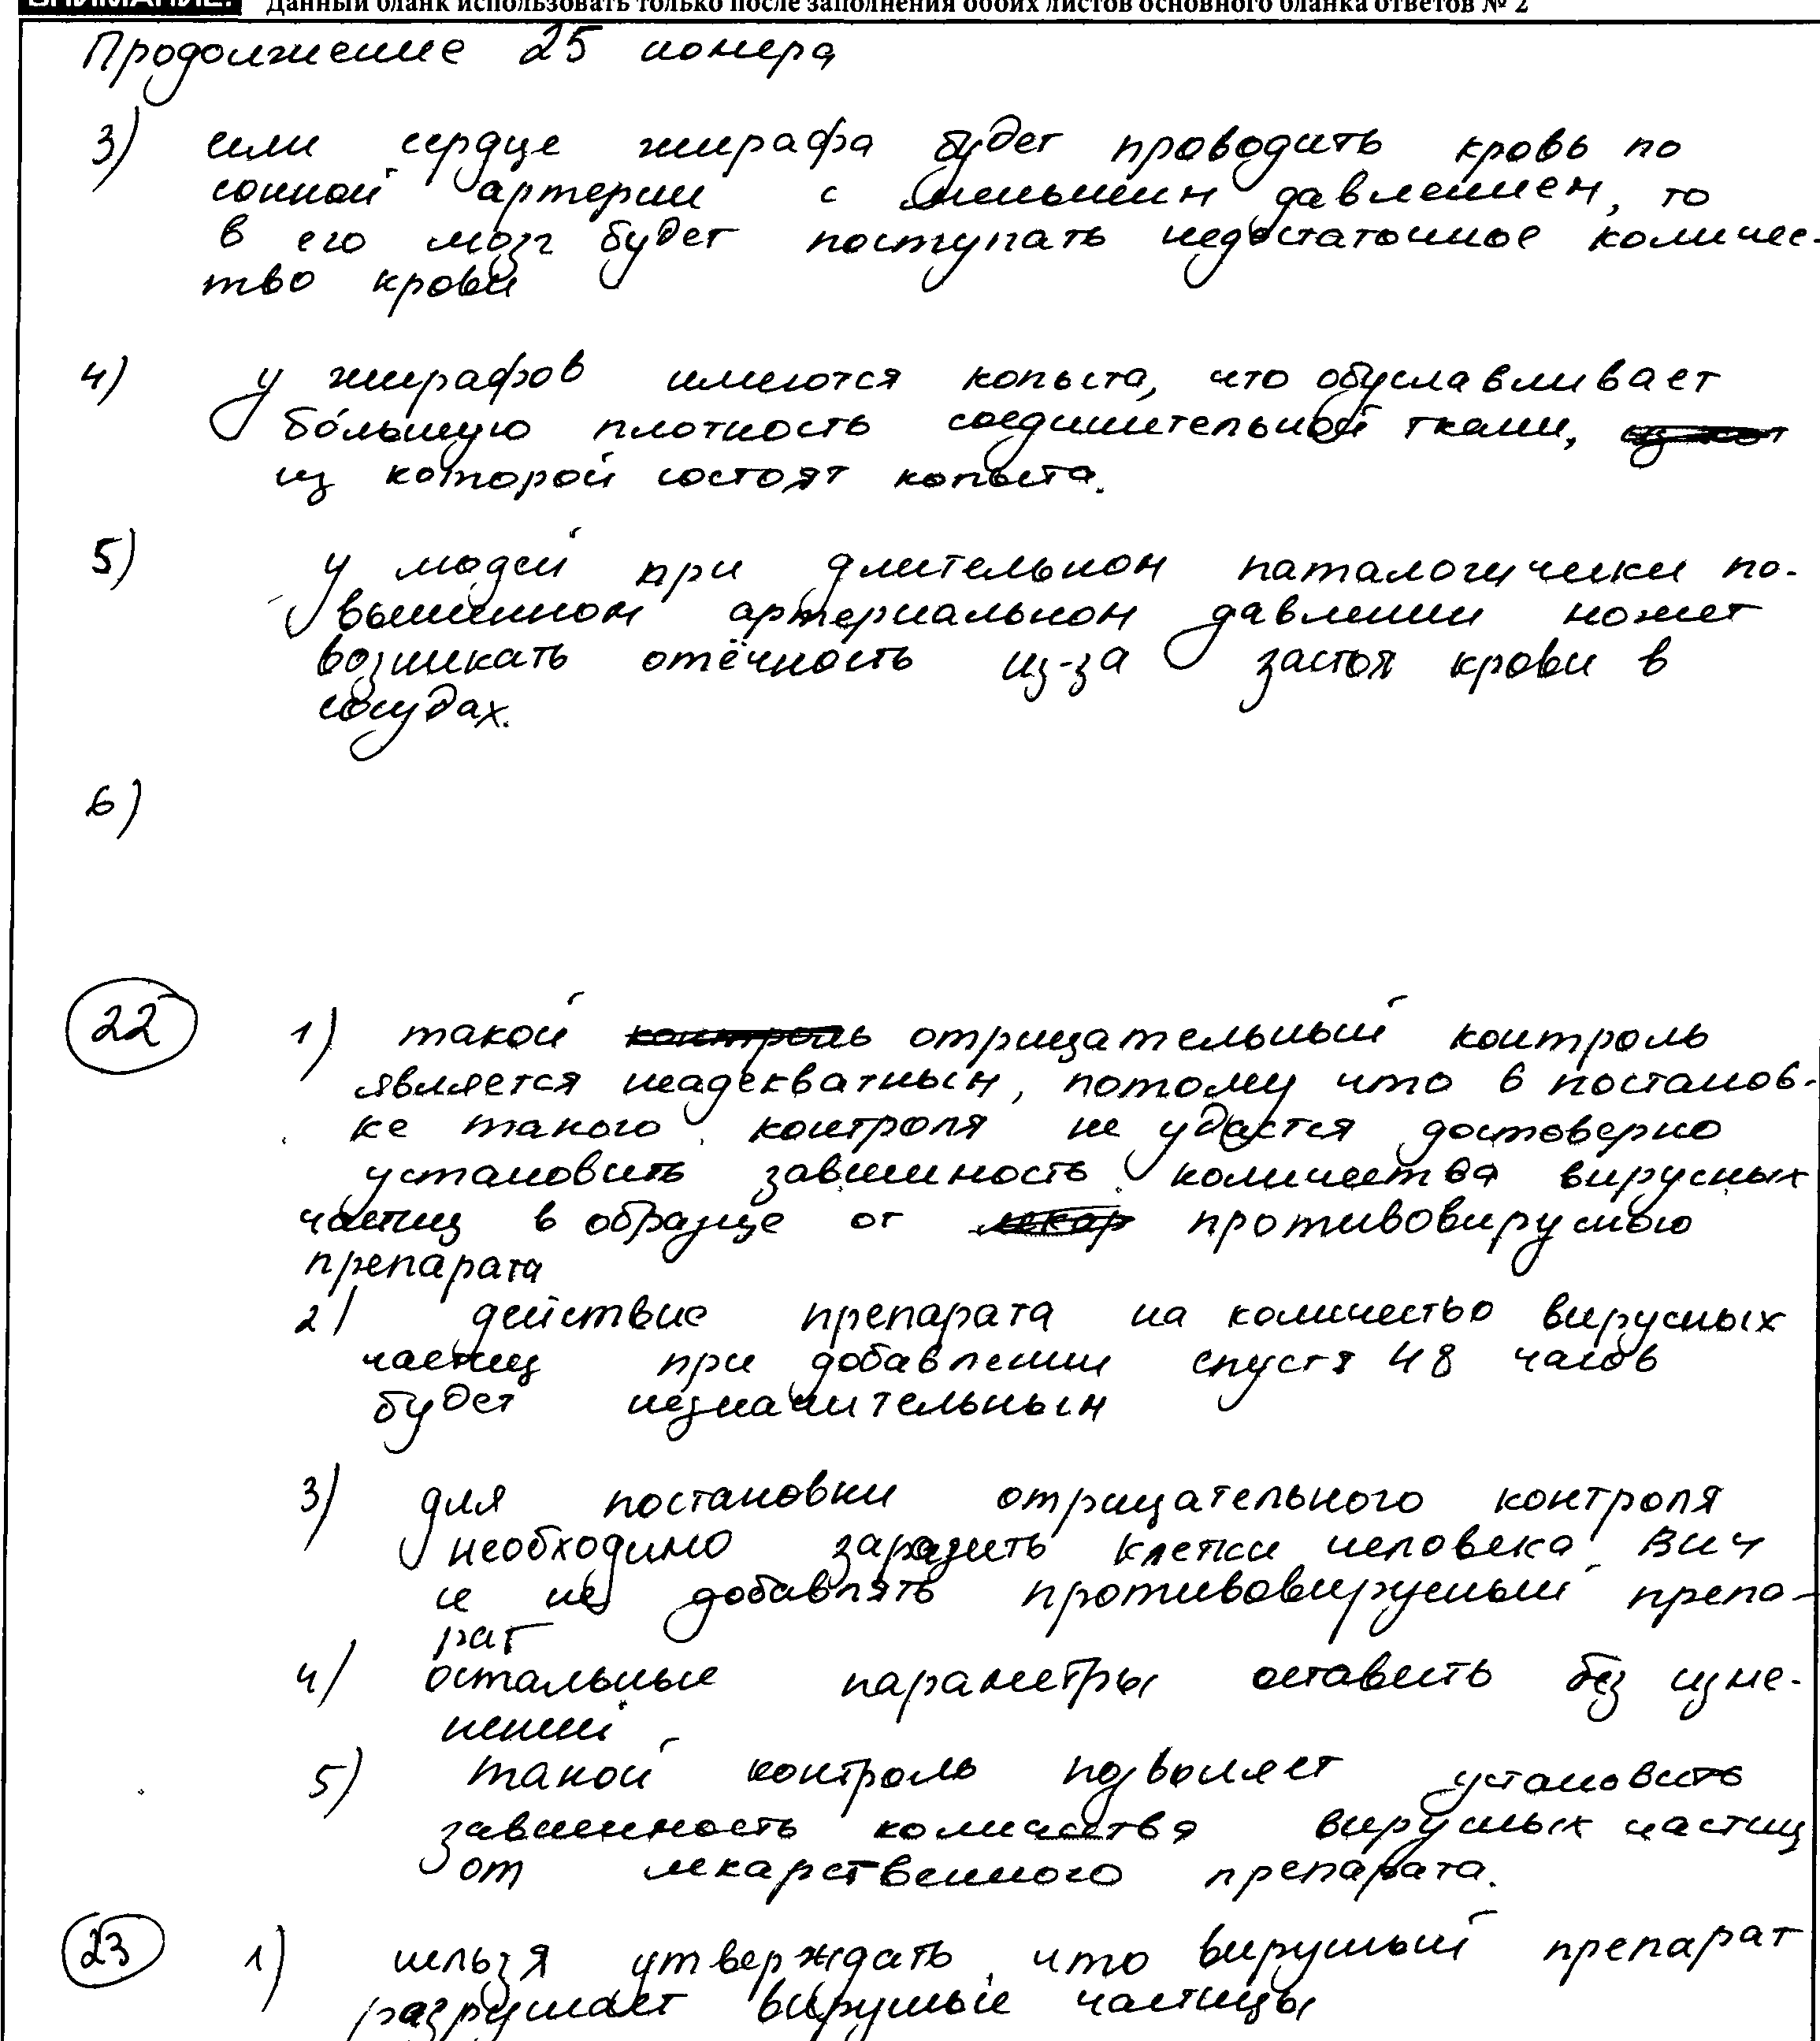 ВНИМАНИЕ! Данный бланк использовать только после заполнения обоих листов основного бланка ответов № 2
Продолжение 25 номера
3) если сердце жирафа будет проводить кровь по
сонной артерии с меньшим давлением, то
в его мозг будет поступать недостаточное количес-
тво крови
4) у жирафов имеются копыта, что обуславливает
бо́льшую плотность соединительной ткани,
из которой состоят копыта.
5) у людей при длительном паталогически по-
вышенном артериальном давлении может
возникать отёчность из-за застоя крови в
сосудах.
6)
22 1) такой отрицательный контроль
является неадекватным, потому что в постанов-
ке такого контроля не удастся достоверно
установить зависимость количества вирусных
частиц в образце от противовирусного
препарата
2) действие препарата на количество вирусных
частиц при добавлении спустя 48 часов
будет незначительным
3) для постановки отрицательного контроля
необходимо заразить клетки человека ВИЧ
и не добавлять противовирусный препа-
рат
4) остальные параметры оставить без изме-
нений
5) такой контроль позволяет установить
зависимость количества вирусных частиц
от лекарственного препарата.
23 1) нельзя утверждать, что вирусный препарат
разрушает вирусные частицы